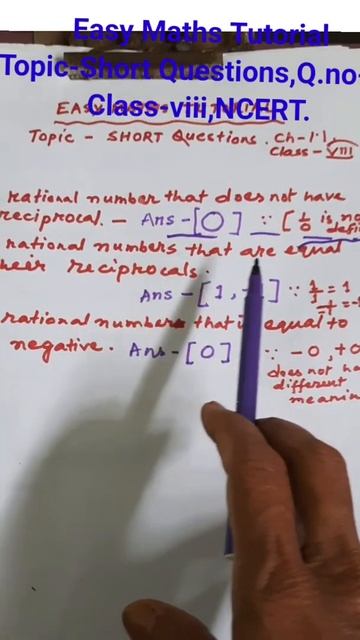 Easy Maths Tutorial
Topic-Short Questions,Q.no-
Class-viii,NCERT.
EASY
Topic - SHORT Questions. Ch-1.1
Class - VIII
rational number that does not have
reciprocal. - Ans - [0] ∵ [ 1/0 is not
rational numbers that are equal
their reciprocals.
Ans - [1, -1] ∵ 1/1 = 1
rational numbers that is equal to
negative. Ans - [0] ∵ -0, +0
does not ha
different
meanin